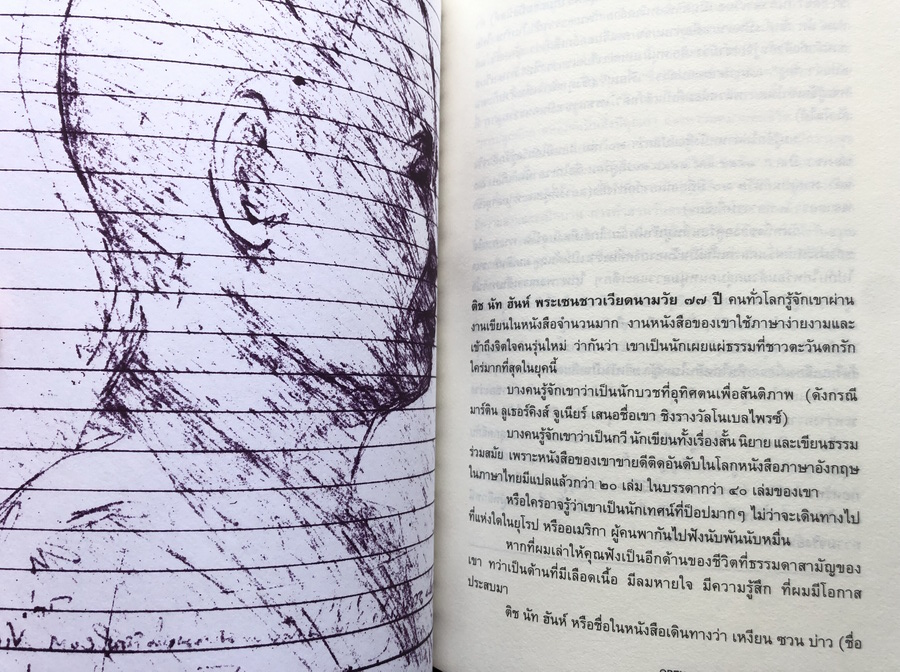 ติช นัท ฮันห์ พระเซนชาวเวียดนามวัย ๗๗ ปี คนทั่วโลกรู้จักเขาผ่าน
งานเขียนในหนังสือจำนวนมาก งานหนังสือของเขาใช้ภาษาง่ายงามและ
เข้าถึงจิตใจคนรุ่นใหม่ ว่ากันว่า เขาเป็นนักเผยแผ่ธรรมที่ชาวตะวันตกรัก
ใคร่มากที่สุดในยุคนี้
บางคนรู้จักเขาว่าเป็นนักบวชที่อุทิศตนเพื่อสันติภาพ (ดังกรณี
มาร์ติน ลูเธอร์คิงส์ จูเนียร์ เสนอชื่อเขา ชิงรางวัลโนเบลไพรซ์)
บางคนรู้จักเขาว่าเป็นกวี นักเขียนทั้งเรื่องสั้น นิยาย และเขียนธรรม
ร่วมสมัย เพราะหนังสือของเขาขายดีติดอันดับในโลกหนังสือภาษาอังกฤษ
ในภาษาไทยมีแปลแล้วกว่า ๒๐ เล่ม ในบรรดากว่า ๘๐ เล่มของเขา
หรือใครอาจรู้ว่าเขาเป็นนักเทศน์ที่ป๊อปมากๆ ไม่ว่าจะเดินทางไป
ที่แห่งใดในยุโรป หรืออเมริกา ผู้คนพากันไปฟังนับพันนับหมื่น
หากที่ผมเล่าให้คุณฟังเป็นอีกด้านของชีวิตที่ธรรมดาสามัญของ
เขา ทว่าเป็นด้านที่มีเลือดเนื้อ มีลมหายใจ มีความรู้สึก ที่ผมมีโอกาส
ประสบมา
ติช นัท ฮันห์ หรือชื่อในหนังสือเดินทางว่า เหงียน ซวน บ่าว (ชื่อ